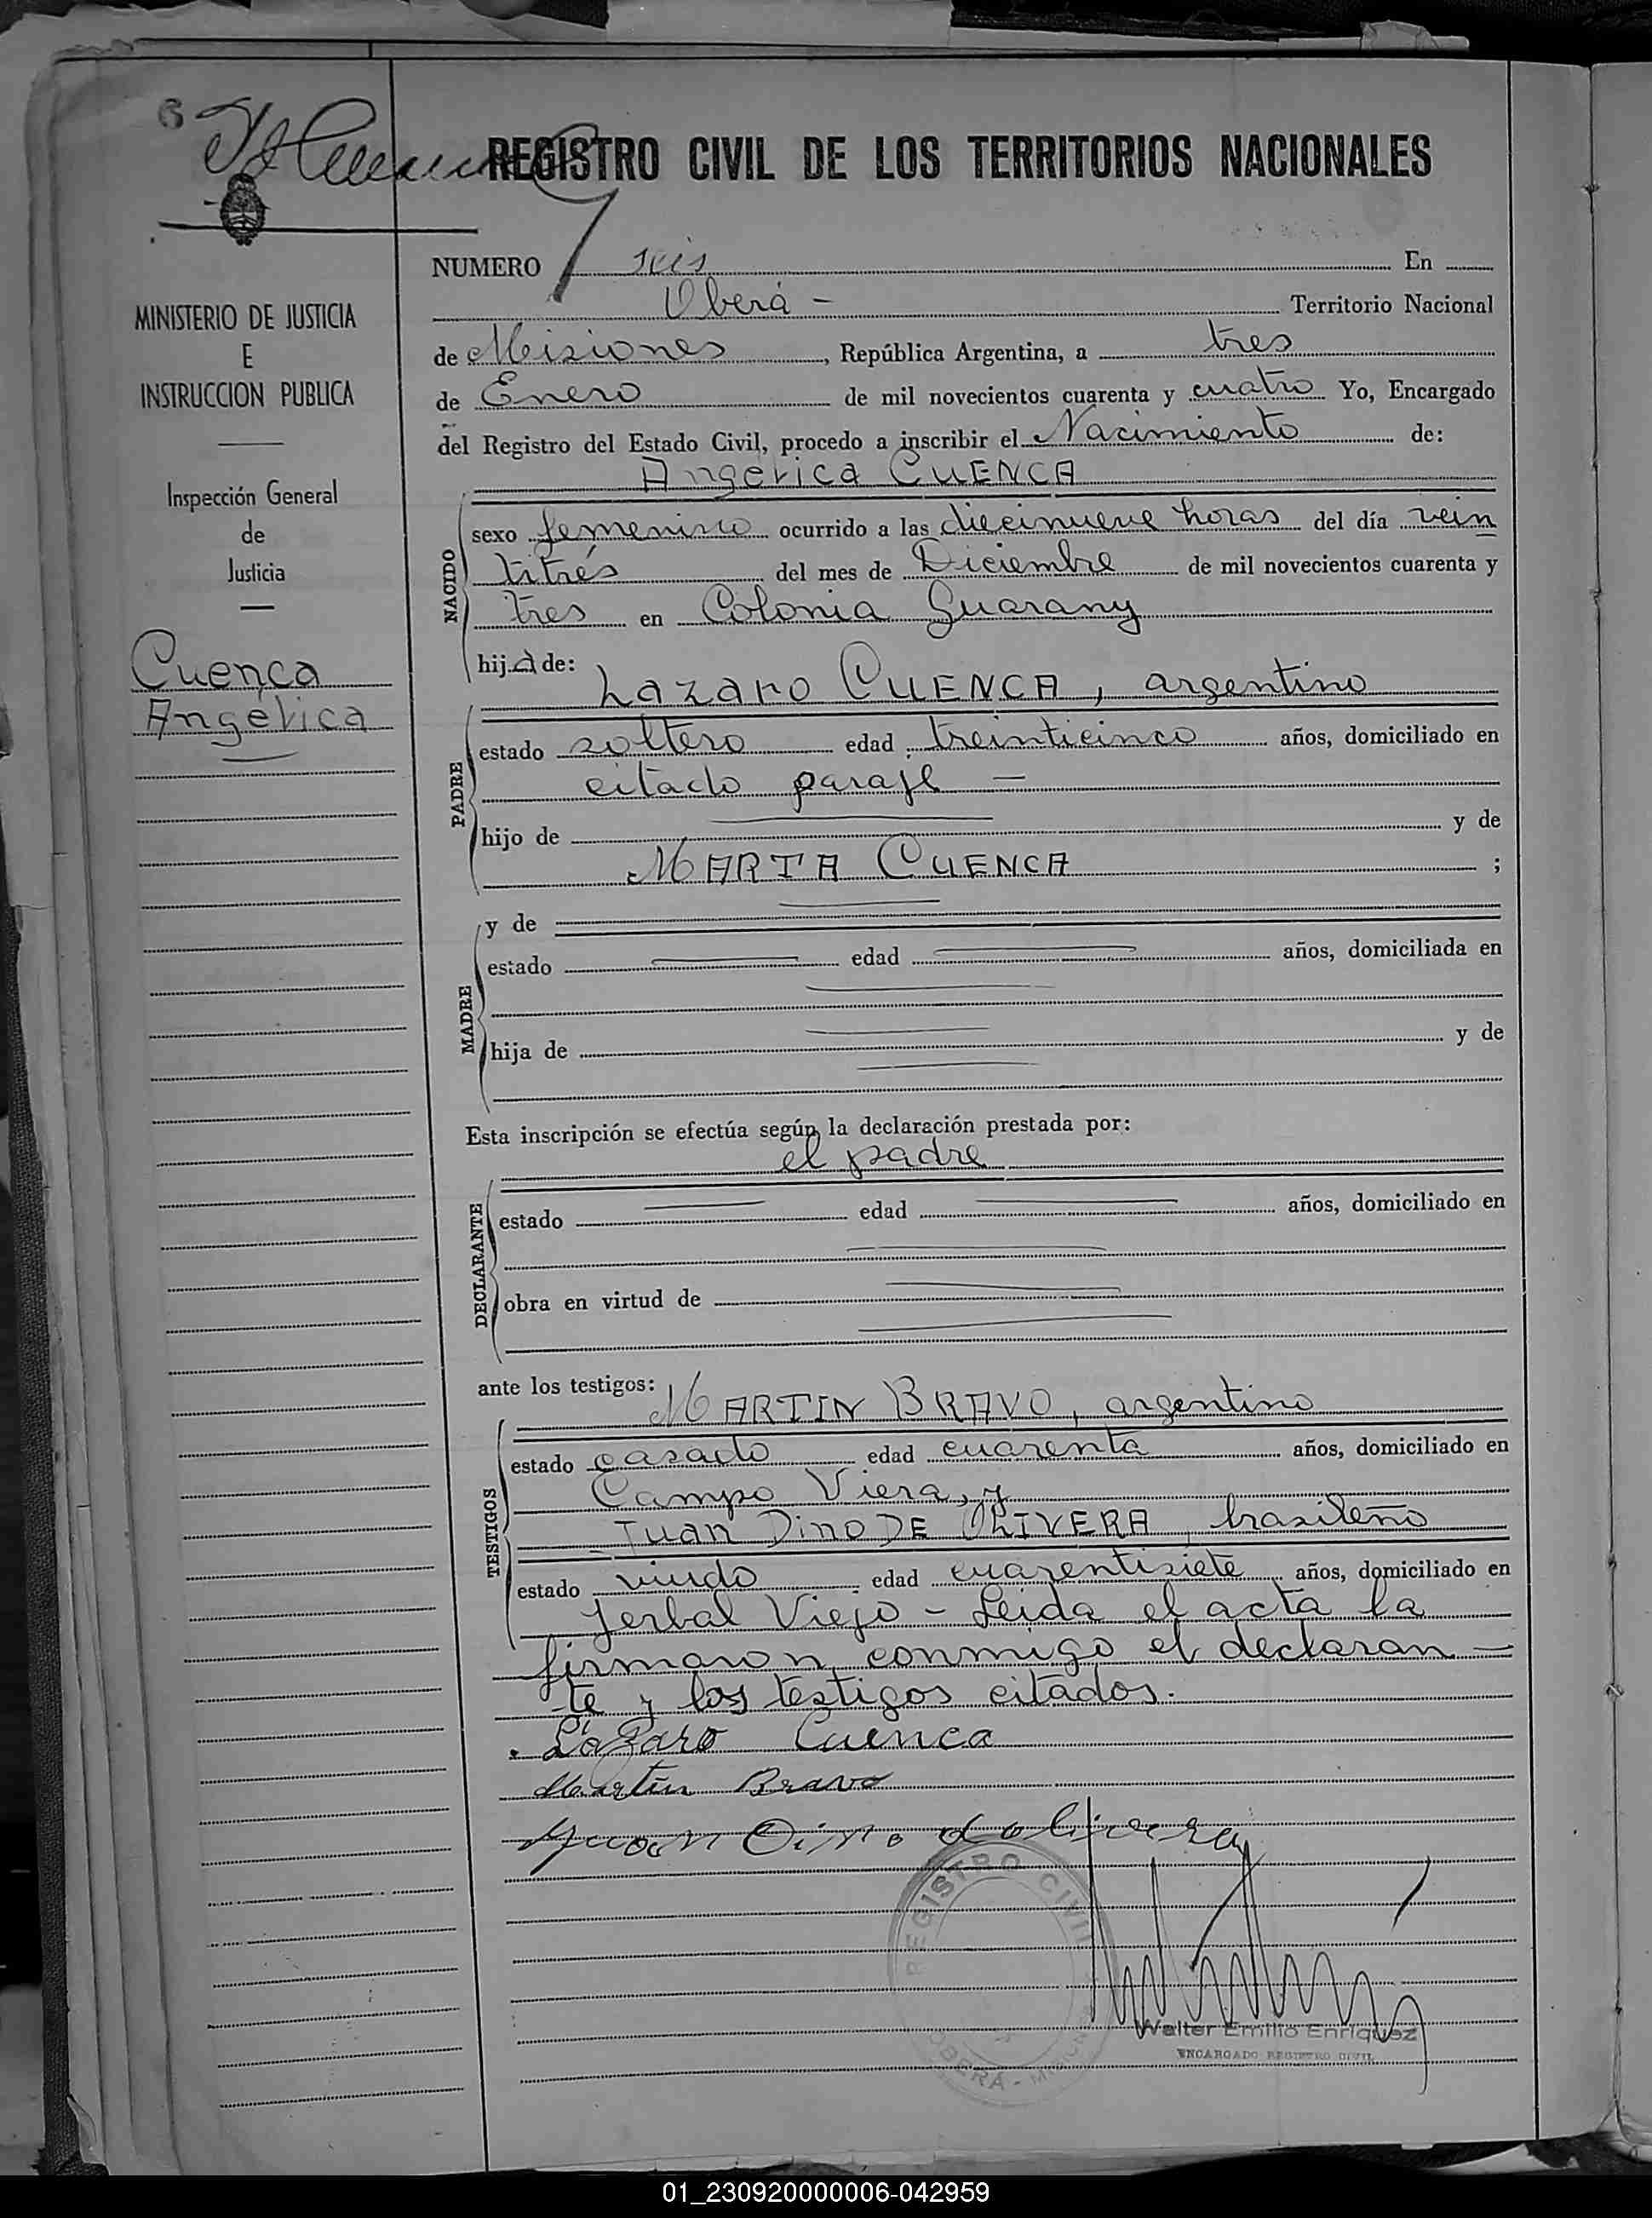 6
REGISTRO CIVIL DE LOS TERRITORIOS NACIONALES
NUMERO seis En
Oberá - Territorio Nacional
de Misiones, República Argentina, a tres
de Enero de mil novecientos cuarenta y cuatro Yo, Encargado
del Registro del Estado Civil, procedo a inscribir el Nacimiento de:
Angelica CUENCA
sexo femenino ocurrido a las diecinueve horas del día vein
titrés del mes de Diciembre de mil novecientos cuarenta y
tres en Colonia Guarany
hija de:
Lazaro CUENCA, argentino
estado soltero edad treinticinco años, domiciliado en
citado paraje -
hijo de y de
MARTA CUENCA ;
y de
estado edad años, domiciliada en
hija de y de
Esta inscripción se efectúa según la declaración prestada por:
el padre
estado edad años, domiciliado en
obra en virtud de
ante los testigos:
MARTIN BRAVO, argentino
estado casado edad cuarenta años, domiciliado en
Campo Viera, y
Juan Dino DE OLIVERA, brasileño
estado viudo edad cuarentisiete años, domiciliado en
Yerbal Viejo - Leida el acta la
firmaron conmigo el declaran-
te y los testigos citados.
Lázaro Cuenca
Martin Bravo
Juan Dino dolivera
REGISTRO CIVIL
OBERÁ -
Walter Emilio Enriquez
ENCARGADO REGISTRO CIVIL
MINISTERIO DE JUSTICIA
E
INSTRUCCION PUBLICA
Inspección General
de
Justicia
Cuenca
Angélica
NACIDO
PADRE
MADRE
DECLARANTE
TESTIGOS
01_230920000006-042959